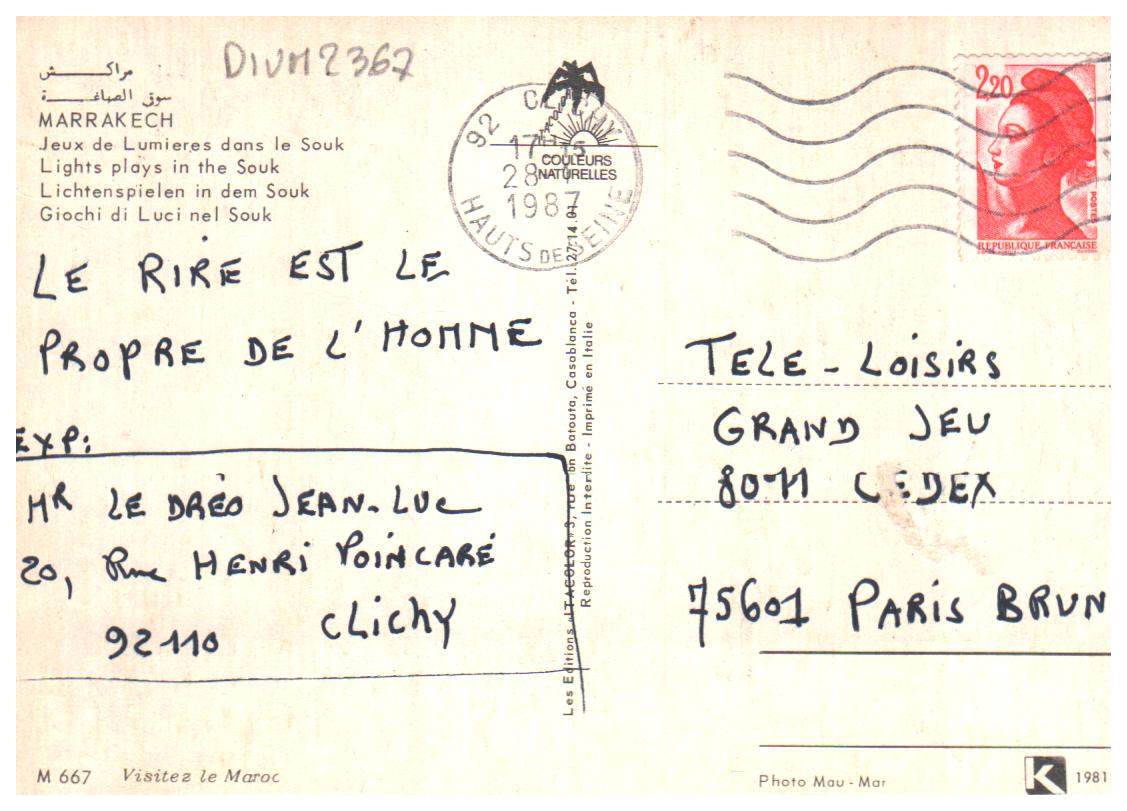 DIVM2367
مراكــــش
سوق الصباغــة
MARRAKECH
Jeux de Lumieres dans le Souk
Lights plays in the Souk
Lichtenspielen in dem Souk
Giochi di Luci nel Souk
LE RIRE EST LE
PROPRE DE L'HOMME
EXP:
MR LE DRÉO JEAN-LUC
20, Rue HENRI POINCARÉ
92110 CLICHY
M 667 Visitez le Maroc
92 CLICHY
17 15
28
1987
HAUTS DE SEINE
COULEURS
NATURELLES
Les Editions «ITACOLOR» 3, rue Ibn Batouta, Casablanca - Tél. 27.14.01
Reproduction Interdite - Imprimé en Italie
2,20
POSTES
REPUBLIQUE FRANCAISE
TELE - LOISIRS
GRAND JEU
8011 CEDEX
75601 PARIS BRUN
Photo Mau - Mar
K 1981